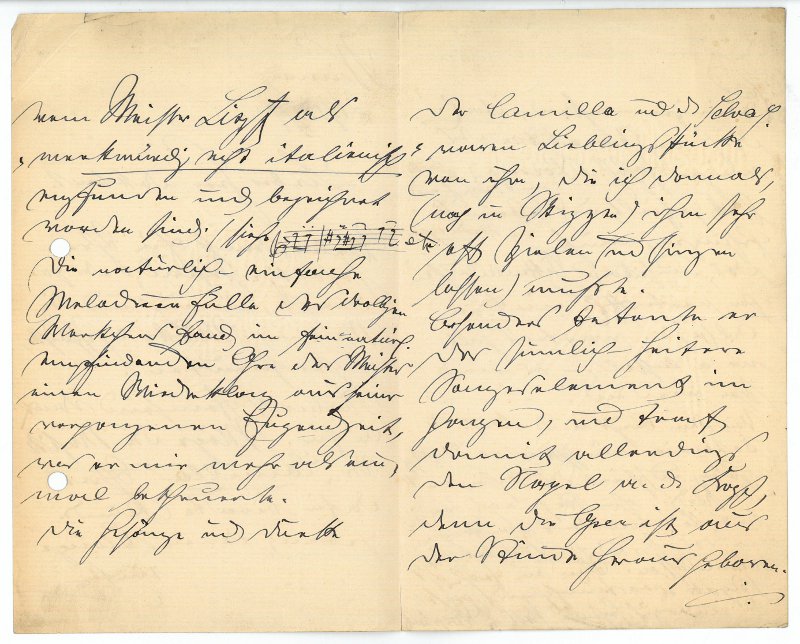 vom Meister Liszt als
"merkwürdig echt italienisch"
empfunden und bezeichnet
worden sind. (siehe etc.
Die natürlich einfache
Melodieenfülle des drolligen
Werkchens fand im fein natürl.
empfindenden Ohre des Meisters
einen Wiederklang aus seiner
vergangenen Jugendzeit,
was er mir mehr als ein,
mal betheuerte.
Die Gesänge und Duette
der Camilla und de Selva
waren Lieblingsstücke
von ihm, die ich damals,
(noch in Skizzen) ihm sehr
oft spielen und singen
lassen) musste.
Besonders betonte er
das sinnlich heitere
Sangeselement im
Ganzen, und traf
damit allerdings
den Nagel a. d. Kopf,
denn die Oper ist aus
der Stunde heraus geboren.